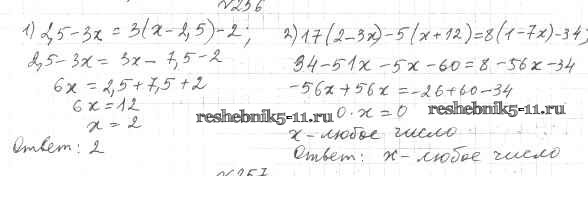 №256
1) 2,5-3x = 3(x-2,5)-2;
2,5-3x = 3x-7,5-2
6x = 2,5+7,5+2
6x = 12
x = 2
Ответ: 2
2) 17(2-3x)-5(x+12)=8(1-7x)-34;
34-51x-5x-60=8-56x-34
-56x+56x=-26+60-34
0·x=0
x-любое число
Ответ: x-любое число
reshebnik5-11.ru
reshebnik5-11.ru
№257